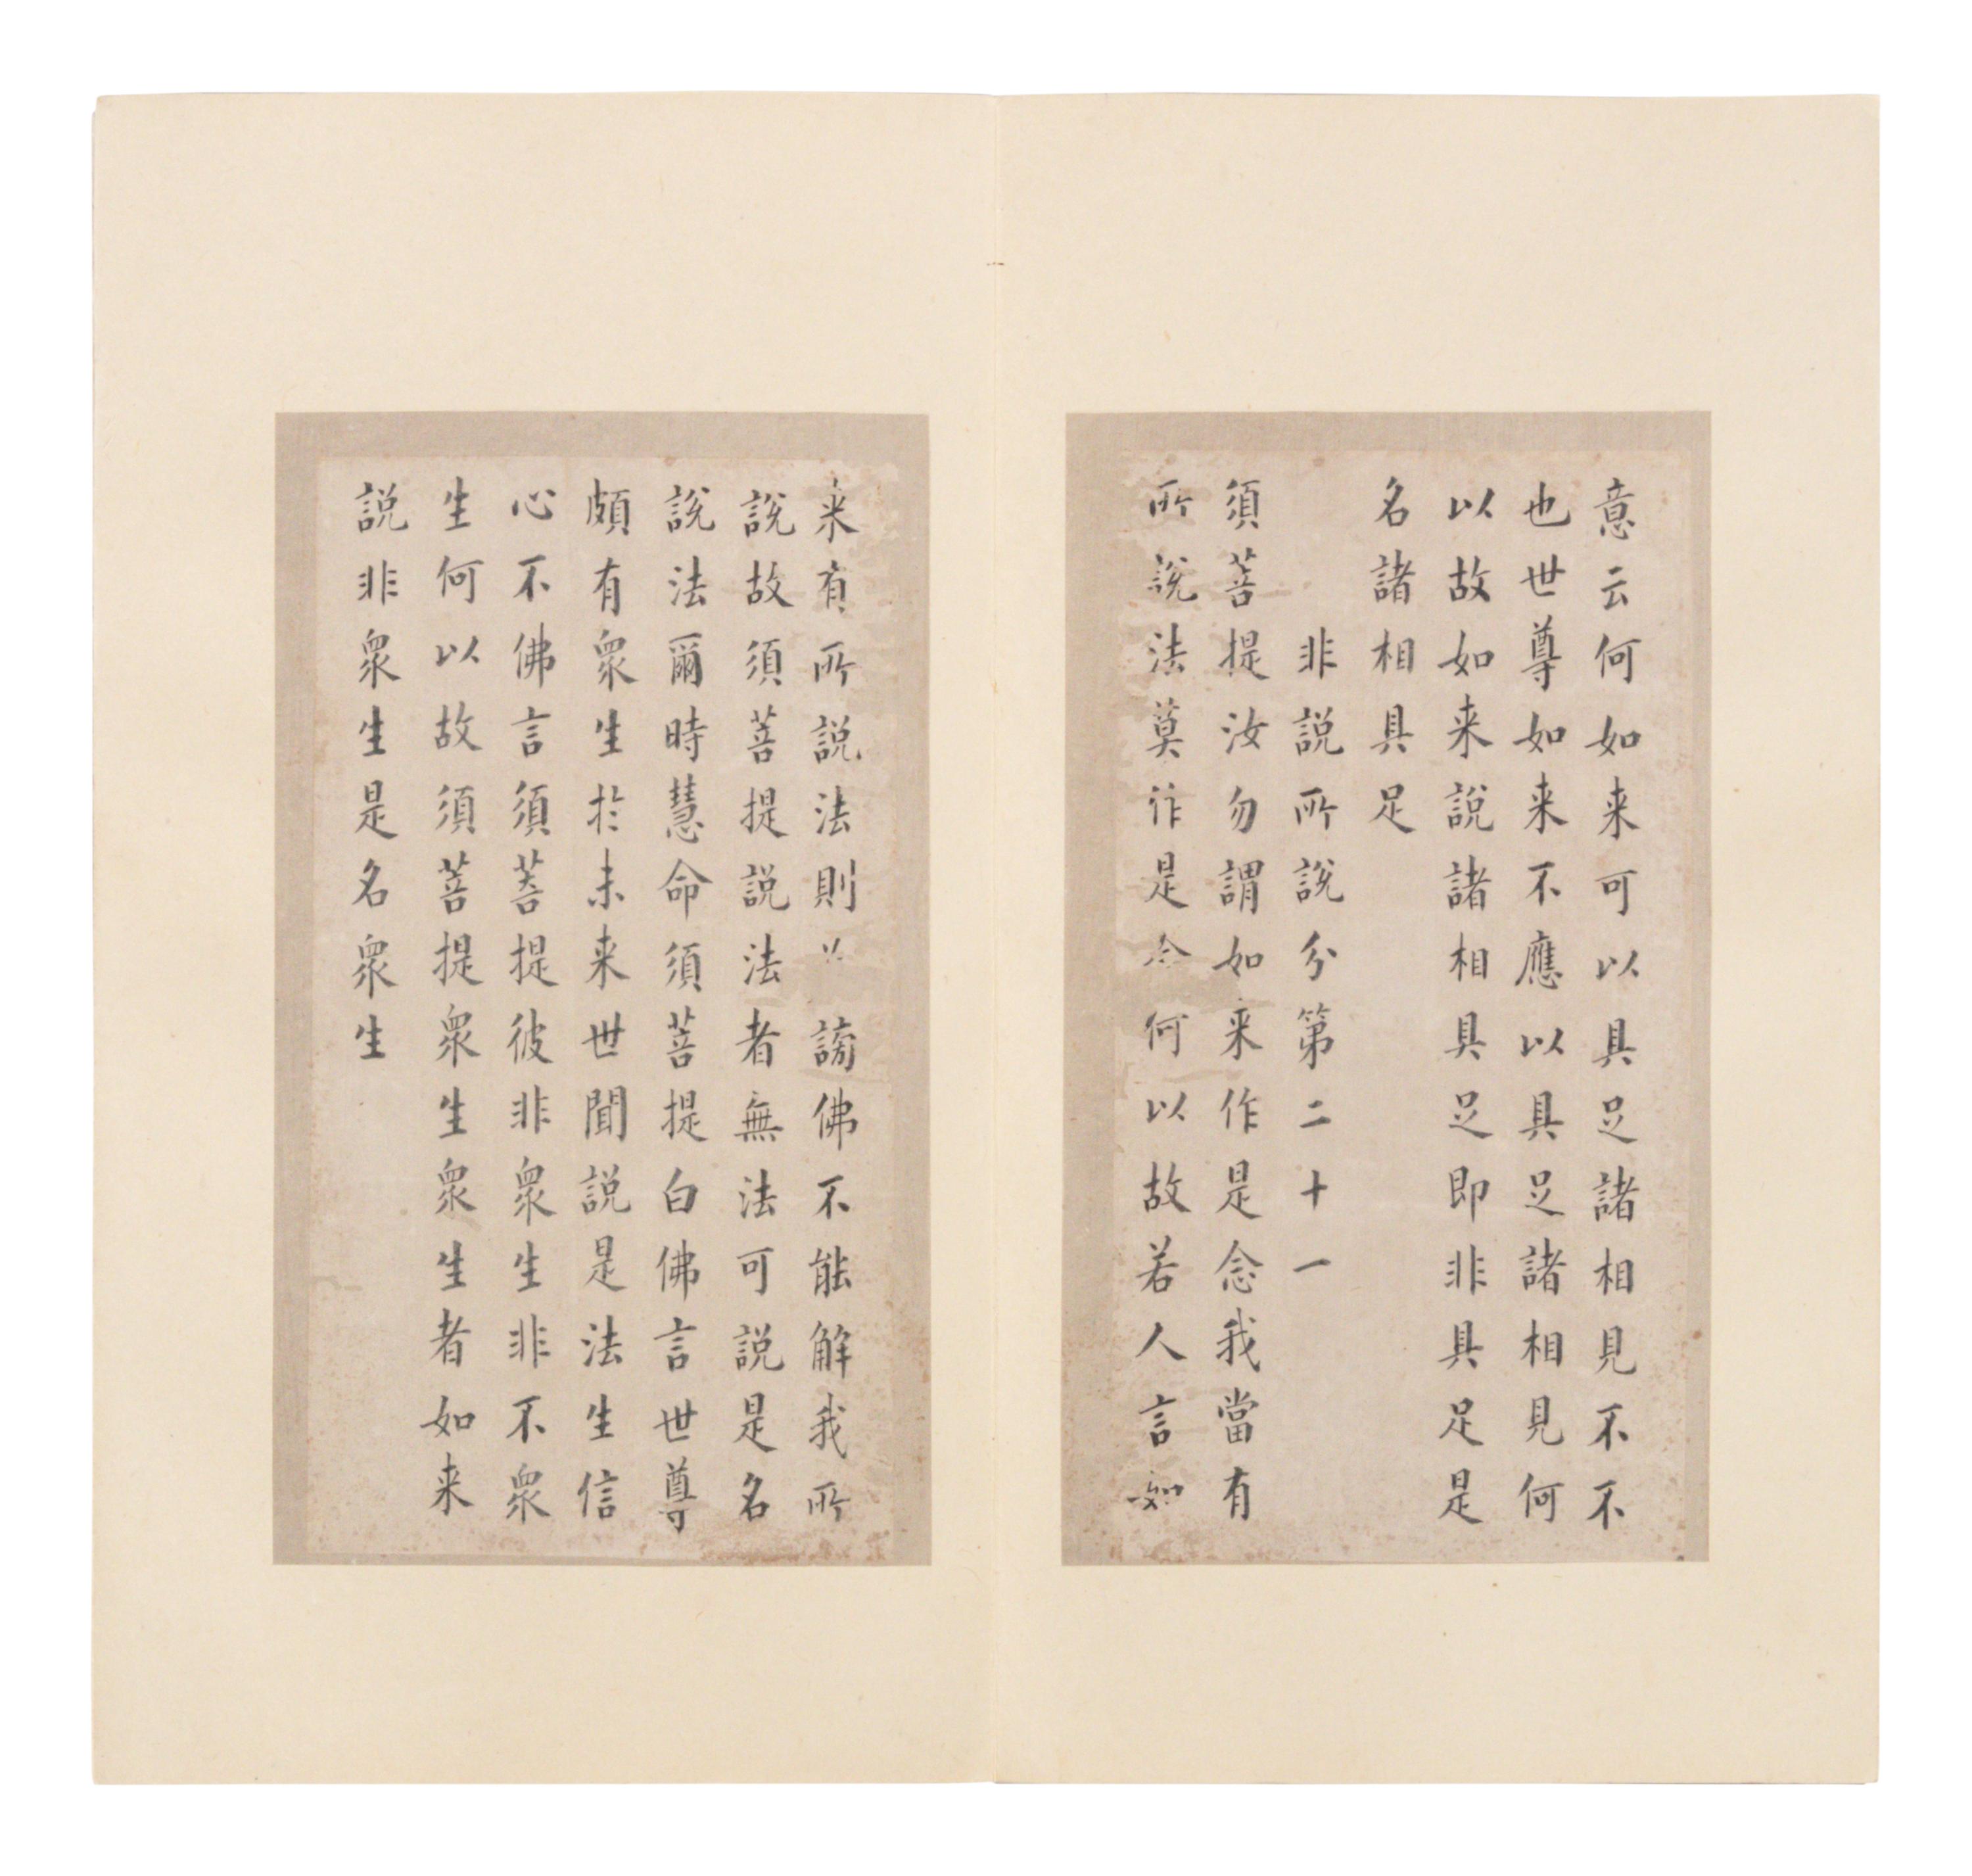 意云何如来可以具足諸相見不不
也世尊如来不應以具足諸相見何
以故如来說諸相具足即非具足是
名諸相具足
非説所說分第二十一
須菩提汝勿謂如来作是念我當有
所說法莫作是念何以故若人言如
来有所説法則謗佛不能解我所
說故須菩提説法者無法可説是名
說法爾時慧命須菩提白佛言世尊
頗有衆生於未来世聞説是法生信
心不佛言須菩提彼非衆生非不衆
生何以故須菩提衆生衆生者如来
説非衆生是名衆生